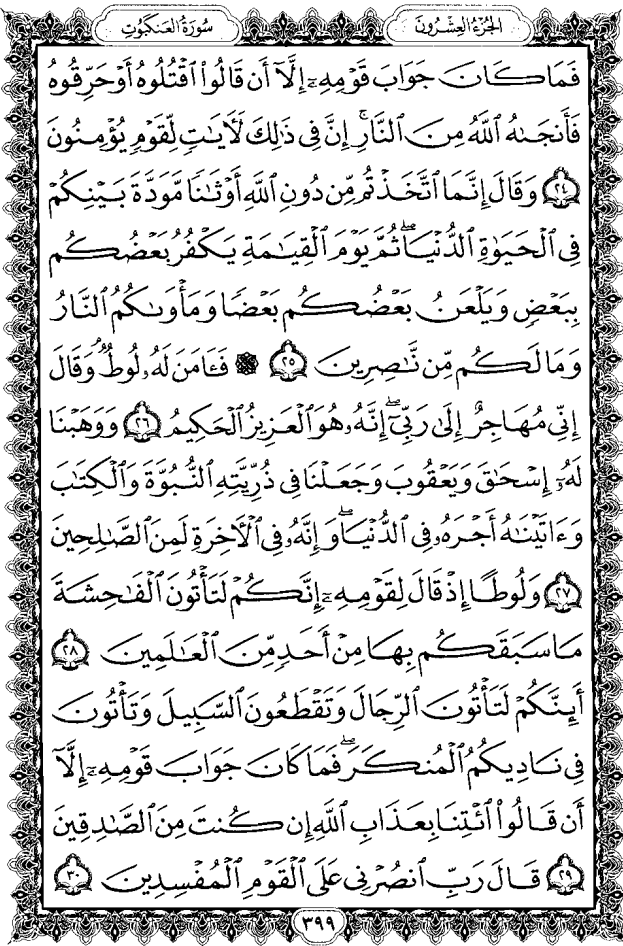 الجزء العشرون سورة العنكبوت
فَمَا كَانَ جَوَابَ قَوْمِهِۦٓ إِلَّآ أَن قَالُوا۟ ٱقْتُلُوهُ أَوْ حَرِّقُوهُ
فَأَنجَىٰهُ ٱللَّهُ مِنَ ٱلنَّارِ ۚ إِنَّ فِى ذَٰلِكَ لَـَٔايَـٰتٍ لِّقَوْمٍ يُؤْمِنُونَ
٢٤ وَقَالَ إِنَّمَا ٱتَّخَذْتُم مِّن دُونِ ٱللَّهِ أَوْثَـٰنًا مَّوَدَّةَ بَيْنِكُمْ
فِى ٱلْحَيَوٰةِ ٱلدُّنْيَا ۖ ثُمَّ يَوْمَ ٱلْقِيَـٰمَةِ يَكْفُرُ بَعْضُكُم
بِبَعْضٍ وَيَلْعَنُ بَعْضُكُم بَعْضًا وَمَأْوَىٰكُمُ ٱلنَّارُ
وَمَا لَكُم مِّن نَّـٰصِرِينَ ٢٥ ۞ فَـَٔامَنَ لَهُۥ لُوطٌ ۘ وَقَالَ
إِنِّى مُهَاجِرٌ إِلَىٰ رَبِّىٓ ۖ إِنَّهُۥ هُوَ ٱلْعَزِيزُ ٱلْحَكِيمُ ٢٦ وَوَهَبْنَا
لَهُۥٓ إِسْحَـٰقَ وَيَعْقُوبَ وَجَعَلْنَا فِى ذُرِّيَّتِهِ ٱلنُّبُوَّةَ وَٱلْكِتَـٰبَ
وَءَاتَيْنَـٰهُ أَجْرَهُۥ فِى ٱلدُّنْيَا ۖ وَإِنَّهُۥ فِى ٱلْـَٔاخِرَةِ لَمِنَ ٱلصَّـٰلِحِينَ
٢٧ وَلُوطًا إِذْ قَالَ لِقَوْمِهِۦٓ إِنَّكُمْ لَتَأْتُونَ ٱلْفَـٰحِشَةَ
مَا سَبَقَكُم بِهَا مِنْ أَحَدٍ مِّنَ ٱلْعَـٰلَمِينَ ٢٨
أَئِنَّكُمْ لَتَأْتُونَ ٱلرِّجَالَ وَتَقْطَعُونَ ٱلسَّبِيلَ وَتَأْتُونَ
فِى نَادِيكُمُ ٱلْمُنكَرَ ۖ فَمَا كَانَ جَوَابَ قَوْمِهِۦٓ إِلَّآ
أَن قَالُوا۟ ٱئْتِنَا بِعَذَابِ ٱللَّهِ إِن كُنتَ مِنَ ٱلصَّـٰدِقِينَ
٢٩ قَالَ رَبِّ ٱنصُرْنِى عَلَى ٱلْقَوْمِ ٱلْمُفْسِدِينَ ٣٠
٣٩٩